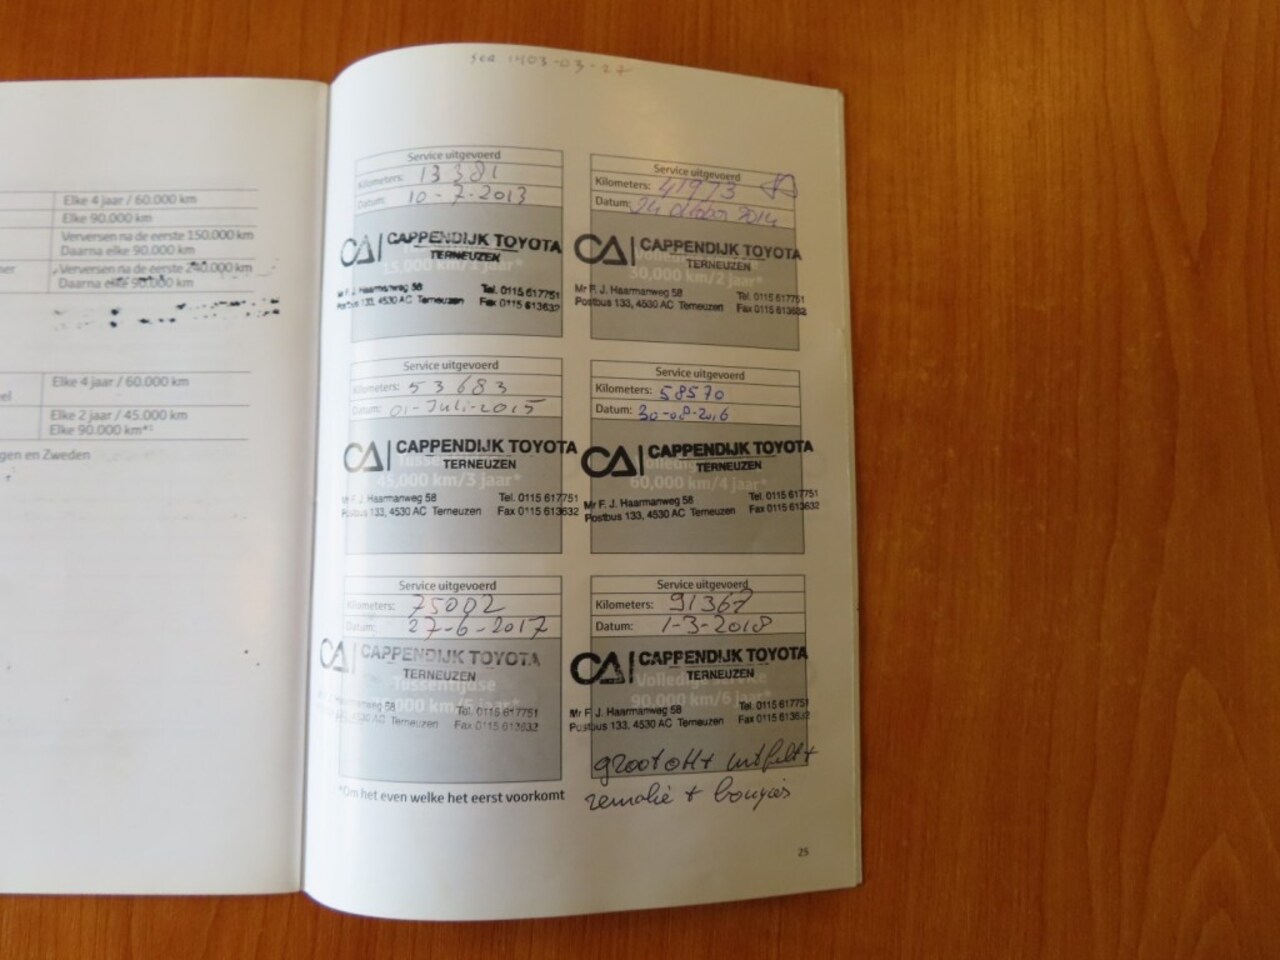 Elke 4 jaar / 60.000 km
Elke 90.000 km
Verversen na de eerste 150.000 km
Daarna elke 90.000 km
Verversen na de eerste 240.000 km
Daarna elke 90.000 km
Elke 4 jaar / 60.000 km
Elke 2 jaar / 45.000 km
Elke 90.000 km*¹
gen en Zweden
1403-03-27
Service uitgevoerd
Kilometers: 13381
Datum: 10-7-2013
CA CAPPENDIJK TOYOTA
TERNEUZEN
15,000 km/1 jaar*
Mr F. J. Haarmanweg 58 Tel. 0115 617751
Postbus 133, 4530 AC Terneuzen Fax 0115 613632
Service uitgevoerd
Kilometers: 41973
Datum: 24 oktober 2014
CA CAPPENDIJK TOYOTA
TERNEUZEN
30,000 km/2 jaar*
Mr F. J. Haarmanweg 58 Tel. 0115 617751
Postbus 133, 4530 AC Terneuzen Fax 0115 613632
Service uitgevoerd
Kilometers: 53683
Datum: 01-Juli-2015
CA CAPPENDIJK TOYOTA
TERNEUZEN
45,000 km/3 jaar*
Mr F. J. Haarmanweg 58 Tel. 0115 617751
Postbus 133, 4530 AC Terneuzen Fax 0115 613632
Service uitgevoerd
Kilometers: 58570
Datum: 30-08-2016
CA CAPPENDIJK TOYOTA
TERNEUZEN
60,000 km/4 jaar*
Mr F. J. Haarmanweg 58 Tel. 0115 617751
Postbus 133, 4530 AC Terneuzen Fax 0115 613632
Service uitgevoerd
Kilometers: 75002
Datum: 27-6-2017
CA CAPPENDIJK TOYOTA
TERNEUZEN
Tussentijdse
000 km/5 jaar*
Haarmanweg 58 Tel. 0115 617751
AC Terneuzen Fax 0115 613632
Service uitgevoerd
Kilometers: 91367
Datum: 1-3-2018
CA CAPPENDIJK TOYOTA
TERNEUZEN
Volledige service
90,000 km/6 jaar*
Mr F. J. Haarmanweg 58 Tel. 0115 617751
Postbus 133, 4530 AC Terneuzen Fax 0115 613632
groot +
remolie + bougies
*Om het even welke het eerst voorkomt
25